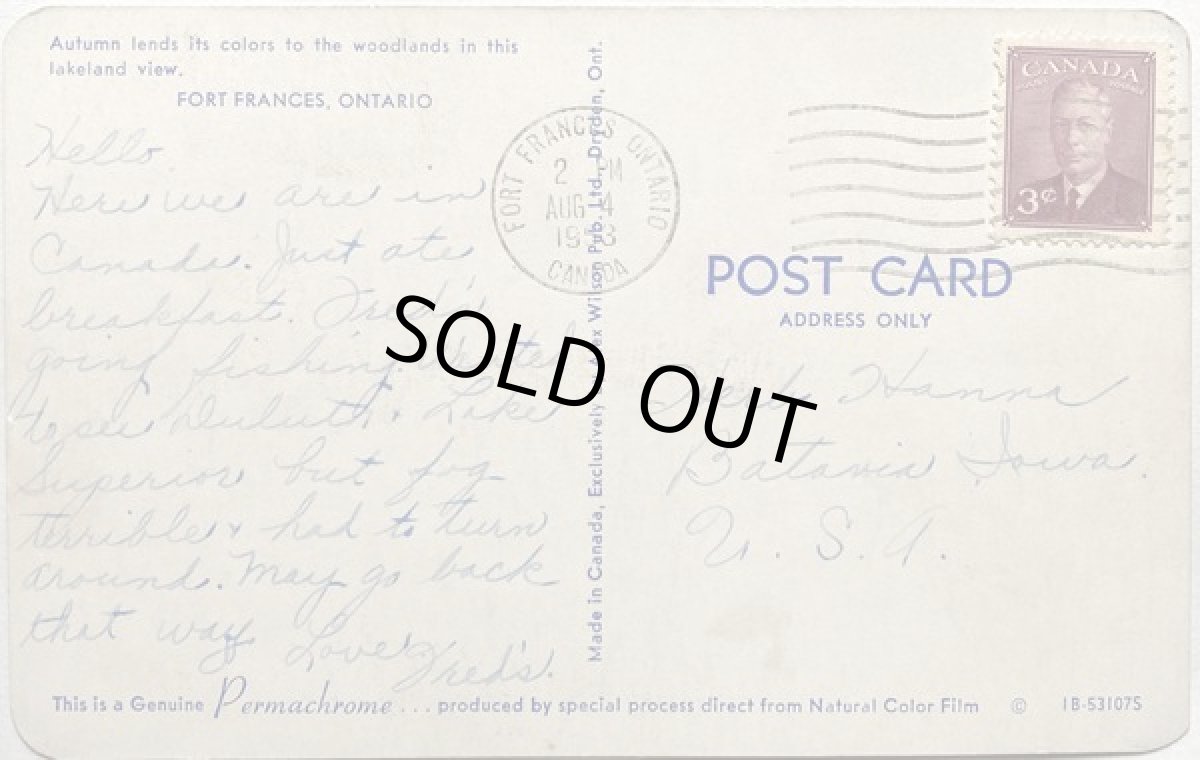 Autumn lends its colors to the woodlands in this
lakeland view.
FORT FRANCES, ONTARIO
Hello
Here we are in
Canada. Just ate
breakfast. Fred's
going fishing.
to see Duluth & Lake
Superior but fog
terrible & had to turn
around. May go back
that way
Love
Fred's.
Made in Canada, Exclusively Wilson Pub. Ltd., Dryden, Ont.
FORT FRANCES ONTARIO
2 PM
AUG 4
CANADA
CANADA
3¢
POST CARD
ADDRESS ONLY
Hanna
Batavia Iowa.
U. S. A.
SOLD OUT
This is a Genuine Permachrome ... produced by special process direct from Natural Color Film © 1B-53107S